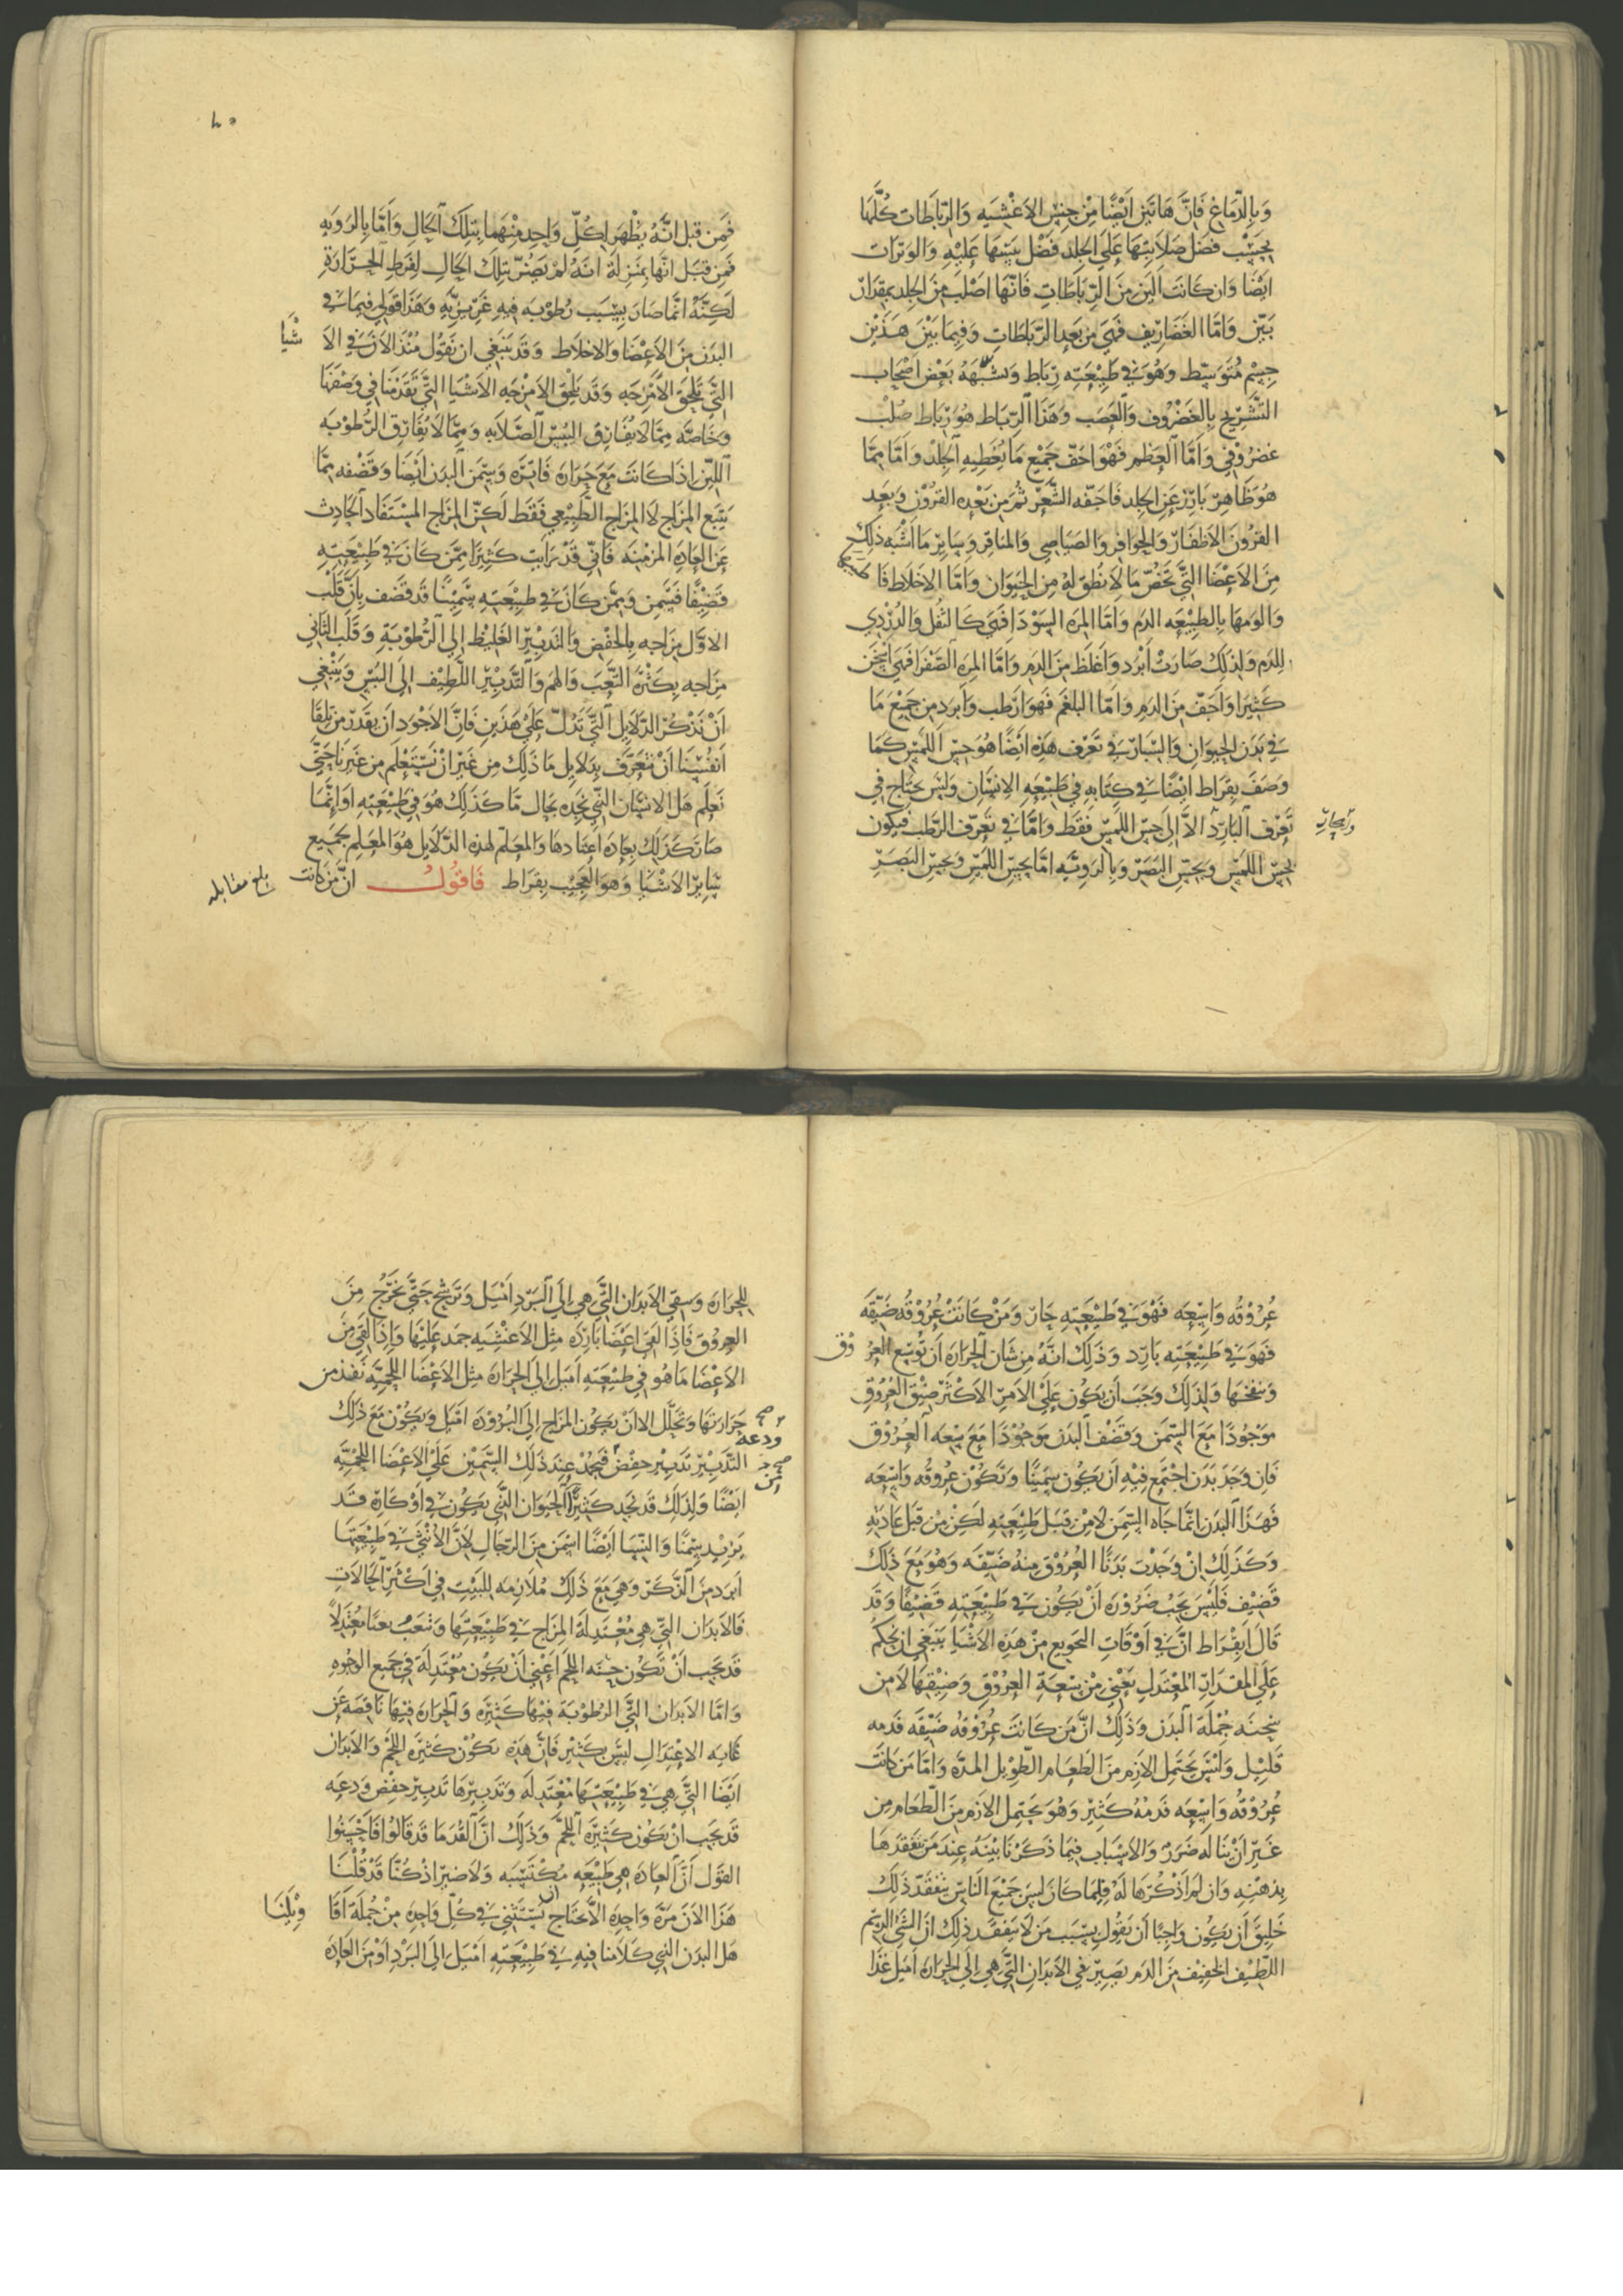 وَبِالدِّمَاغِ فَانَّ هَاتَيْنِ اَيْضًا مِنْ جِنْسِ الاَغْشِيَهِ وَالرِّبَاطَات كُلَّهَا
بِحَسَبْ فَضْل صَلَابَتِهَا عَلَى الجِلدِ فَضْل يَبَسهَا عَلَيْهِ وَالوَتَرَات
اَيْضًا وَان كَانَتَ اَليَن مِنَ الرِّبَاطَاتِ فَانَّهَا اَصْلَب مِنَ الجِلدِ بمِقدَار
بَيِّن وَامَّا الغَضَارِيف فَهِيَ مِن بَعدِ الرّبَاطَاتِ وَفِيمَا بَيْنَ هَذَيْنِ
جِسْم مُتَوَسِّط وَهُوَ فِي طَبِيعَتِه رِبَاط وَيشَبّهَهُ بَعْض اَصْحَاب
التَّشَرِيح بِالغَضْرُوف وَالعَصَب وَهَذَا الرِّبَاط هُوَ رِبَاط صُلْب
غضرُوْفي وَامَّا العَظم فَهْوَ اجَفّ جَمِيْع مَا يُغَطِيهِ الجِلْد وَامَّا مِمَّا
هُوَ ظَاهِر بَارِز عَنِ الجِلد فَاجَفّه الشَّعَر ثُمَّ مِن بَعْدِه القرُوْن وَبَعد
القرُوْن الاَظفَار وَالحَوَافِر وَالصَيَاصِي وَالمنَاقِر وَسَايِر مَا اَشْبَه ذَلِكَ
مِنَ الاَعِضَا الَّتِي تَخُصّ مَا لَا نُطق لَهُ مِن الحَيَوَان وَامَّا الاَخلَاط فَا صحها
وَالوَمهَا بِالطَبِيْعَه الدَم وَامَّا المِرَه السَوْدَا فَهِيَ كَالثُفل وَالدُرْدِي
لِلدَم وَلِذَلِكَ صَارَتْ اَبْرَد وَاَغلَظ مِنَ الدَمِ وَامَّا المِرَه الصَفرَا فَهِيَ اسْخَن
كَثِيرًا وَاَجَفّ مِنَ الدَم وَامَّا البَلغَم فَهوَ ارَطَب وَابرَد مِن جَمِيْع مَا
فِي بَدَنِ الحَيَوَانِ وَالسِّبَار فِي تَعَرْف هَذِه ايَضًا هُوَ حِسّ اللَمْس كَمَا
وَصَفَ بِقَراط ايْضًا فِي كِتَابِهِ فِي طَبِيْعَهِ الاِنسَان وَليَسَ يحتَاج فِي
تَعَرّف البَارِد الاَّ اِلَى حِسّ اللَّمْس فَقَط وَامَّا فِي تَعَرّف الرّطب فَيكون
وَالحَارّ
بِحِسّ اللَمْسِ وَبِحِسّ البَصَر وَبِالرَوِيَّه امَّا بِحِسّ اللَمْسِ وَبِحِسّ البَصَرِ
فَمِن قبَل انَّهُ يَظْهَر لِكُلّ وَاحِد مِنْهُمَا بِتلِكَ الحَالِ وَاَمَّا بِالرَويَهِ
فَمِن قبَل انَّهَا بِمَنزِلة انَهُ لَمْ يَصُرْ بِتلِكَ الحَالِ لفَرطِ الحَرَارَةِ
لَكِنَّهُ انَّمَا صَارَ بِسَبَب رُطُوبَه فِيهِ غَرِيْزِيَّهِ وَهَذَا قَولي فِيمَا فِي
البَدَن مِنَ الاَعضَا وَالاخلَاط وَقَد يَنبَغِي ان نَقُول مُنْذ الاَن فِي الاَ شْيَا
التَّي تَلحَق الاَمْزِجَه وَقَد يَلحَق الاَمزجَه الاَشيَا التَّي تَقدَمنَا فِي وَصْفهَا
وَخَاصَّه مِمَّا لَا يُفَارِق اليُبْسَ الصَّلَابَه وَمِمَّا لَا يُفَارِق الرُطُوبَه
اللّين اذَا كَانَت مَعَ حَرَارَه فَاتِرَه وَسِمَن البَدَن اَيْضَا وَقَضَفه مِمَّا
يتبَع المِزَاج لَا المِزَاج الطَبِيْعي فَقَط لَكِنّ المِزَاج المسْتَفَاد الحَادِث
عَن العَادَهِ المزمنَه فَانِّي قَدْ رَايَت كَثِيْرًا مِمَّن كَانَ فِي طَبِيْعَتِهِ
قَضِيْفًا فَسَمِن وَمِمَّن كَانَ فِي طَبِيْعَتِه سَمِيْنًا قَد قَضُف بِانَّ قَلَب
الاوَّل مِزَاجه بِالخَفْض وَالتَدبِيْر الغَلِيْظ الى الرُّطُوبَةِ وَقَلَب الثَّاني
مِزَاجه بِكَثْرَه التَّعَبَ وَالهم وَالتَّدبِيْر اللَّطِيْف الَى اليُبْسِ وَيَنْبَغِي
اَنْ نَذْكُر الدّلَايِل الَّتِي تَدُلّ عَلَى هَذَيِن فَانَّ الاَجْوَد ان نَقدِر مِن تلِقَا
اَنفُسِنَا اَنْ نَتَعَرَّف بِدَلَايِل مَا ذَلِكَ مِن غَيْر اَنْ نسْتَعْلِم مِن غَيِرنَا حَتَّى
نَعلَم هَل الانسَان الّذِي نَجِده بحَالٍ مَّا كَذَلِك هُوَ فِي طَبِيْعَتِهِ اَو انَّمَا
صَارَ كَذَلِكَ بِعَادَه اَعتَادهَا وَالمعَلم لهَذِه الدَّلَايِل هُوَ المعَلِم بجَمِيع
سَايِر الاَشْيَا وَهوَ العَجِيْب بِقرَاط فَاقولُ انّ مَن كَانَت
بلغ مقابله
عُرُوْقُه وَاسِعِه فَهْوَ فِي طَبِيْعَتِهِ حَارّ وَمَنْ كَانَتْ عُرُوْقُه ضَيِّقَه
فَهوَ فِي طَبِيْعَتِه بَارِد وَذَلِكَ انَّهُ مِن شَانِ الحَرَارَه ان تُوسِّع العُرُ وْق
وَتنفخهَا وَلِذَلِكَ وَجَبَ اَن يَكُون عَلَى الاَمرِ الاَكثَر ضِيْق العُرُوْقِ
مَوْجُودًا مَعَ السِّمَن وَقَضَف البَدَن مَوجُوْدًا مَعَ سِعَه العُرُوْق
فَان وَجَد بَدَن اجْتَمَع فِيْهِ اَن يَكُون سَمِيْنًا وَتَكُوْن عُرُوقه وَاسِعَه
فَهَذَا البَدَن انَّمَا جَاه السِّمَن لَا مِنْ قِبَل طَبِيْعَتِهِ لَكِنْ مِنْ قِبَل عَادَتِهِ
وَكَذَلِكَ انْ وَجَدْت بَدَنًا العُرُوْق مِنهُ ضَيِّقَه وَهُوَ مَعَ ذَلِكَ
قَضِيْف فَليْسَ يَجب ضَرُوْرَه اَنْ يَكُون فِي طَبِيْعَتِهِ قَضِيْفًا وَقَد
قَالَ ابقْرَاط انَّ فِي اَوْقَاتِ التَجوِيع مِنْ هَذِه الاَشْيَا يَنبَغِي ان يحكم
عَلَى المقدَار المُعتَدِل يَعْنِي مِنْ سِعَةِ العرُوْقِ وَضِيْقِهَا لَا مِن
سَحنَه جُملَة البَدَن وَذَلِكَ انَّ مَن كَانَت عُرُوْقُه ضَيِّقَه فَدمه
قَلِيْل وَلَيسَ يَحتَمِل الازم مِنَ الطَعَامِ الطّوِيْل المدّه وَامَّا مَن كَانَت
عُرُوْقُه وَاسِعَه فَدمُهُ كَثِيْر وَهُوَ يَحتَمِل الازم مِنَ الطّعَام مِن
غَيِر اَنْ يَنَاله ضَرَر وَالاَسْبَاب فِيمَا ذَكَرنَا بَيّنَهُ عِندَ مَن تَفَقدَهَا
بِذِهنِهِ وَان لَم اَذْكُرهَا لَهُ فَلمَّا كَانَ ليسَ جَمِيْع النَاسِ يَتَفقَد ذَلِكَ
خَلِيق اَن يَكُون وَاجِبًا اَن نَقُول بِسَبَب مَن لَا يَتفقّد ذَلِك اَنَّ الشَيْ الدَسِم
اللّطِيْف الخَفِيْف مِنَ الدَم يَصِيْر في الاَبدَانِ التَّي هِيَ إلَى الحَرَارَه اَميَل غَذَا
لِلحَرَارَه وَيبقى فِي الاَبدَان التَّي هِي الَى البَرْدِ اَمْيَل وَتَرشَح حَتَّى يَخرُج مِنَ
العروْق فَاذَا لَقِيَ اعِضَا بَارِدَه مِثل الاَغْشِيَه جَمَد عَلَيْهَا وَاذَا لَقِيَ مِنَ
الاَعْضَا مَا هُو فِي طَبِيْعَتِه اَميَل الَى الحَرَارَه مثل الاَعِضَا اللحميَّه نَفذ من
حَرَارَتهَا وَتحَلَّل الا اَنْ يَكُون المِزَاج الَى البُرُوْدَه اميَل وَيَكُوْن مَعَ ذَلِكَ
التَّدبِيْر تَدبِيْر خَفض فَيَجمُد عِندَ ذَلِكَ السَّمِيْن عَلَى الاَعْضَا اللحْمِيَّه
ودعه صح
ايْضًا وَلِذَلِكَ قَد نجَد كَثِيْرًا الحَيَوَان الَّذِي يَكُون فِي اَوْكَارِه قَد
من صح
يَزيْد سِمنًا وَالنِسَا ايَضًا اسْمَن مِنَ الرّجَالِ لاَنَّ الاُنثَى فِي طَبِيْعَتِهَا
ابَرَد مِنَ الذّكَر وَهِيَ مَعَ ذَلِكَ مُلَازِمَه لِلبَيْتِ فِي اَكثَرِ الحَالَاتِ
فَالابَدَان التَّي هِيَ مُعْتَدِلَة المِزَاجِ فِي طَبِيْعَتِهَا وَتتعَبُ تعبًا مُعْتَدِلًا
قَد يَجِب اَنْ تَكُون حسَنه اللحم اَعِنِي اَنْ يَكُون مُعْتَدِلَة في جَمِيع الوجُوهِ
وَامَّا الاَبدَان التَّي الرطُوبَة فِيْهَا كَثِيْرَه وَالحَرَارَه فِيْهَا نَاقِصَه عَن
غَايَه الاِعتِدَالِ ليسَ بِكَثِيْر فَانَّ هَذِه يَكُوْن كَثِيَرة اللحْم وَالاَبدَان
ايَضَا التَّي هِيَ فِي طَبِيْعَتِهَا مُعْتَدِلَه وَتَدبِيْرهَا تَدبِيْر خَفض وَدعَه
قَد يَجِب انْ يَكُون كَثِيَرة اللحْم وَذَلِكَ انَّ القُدَمَا قَد قَالُوا فَاَحْسَنُوا
القَول اَنَّ العَادَه هِي طَبِيْعَه مُكْتسَبه وَلَا ضيرَ اذ كُنَّا قَدْ قُلْنَا
هَذَا الاَن مَرّة وَاحِدَه الاَّ نحْتَاج ان نَسْتَثْنِي فِي كُلّ وَاحِدَه مِنْ جُملَة اَقَا وِيْلِنَا
هَل البَدَن الّذِي كَلَامنَا فِيهِ فِي طَبِيْعَتِهِ اَمْيَل الَى البَرْدِ اوْ مِن العَادَه